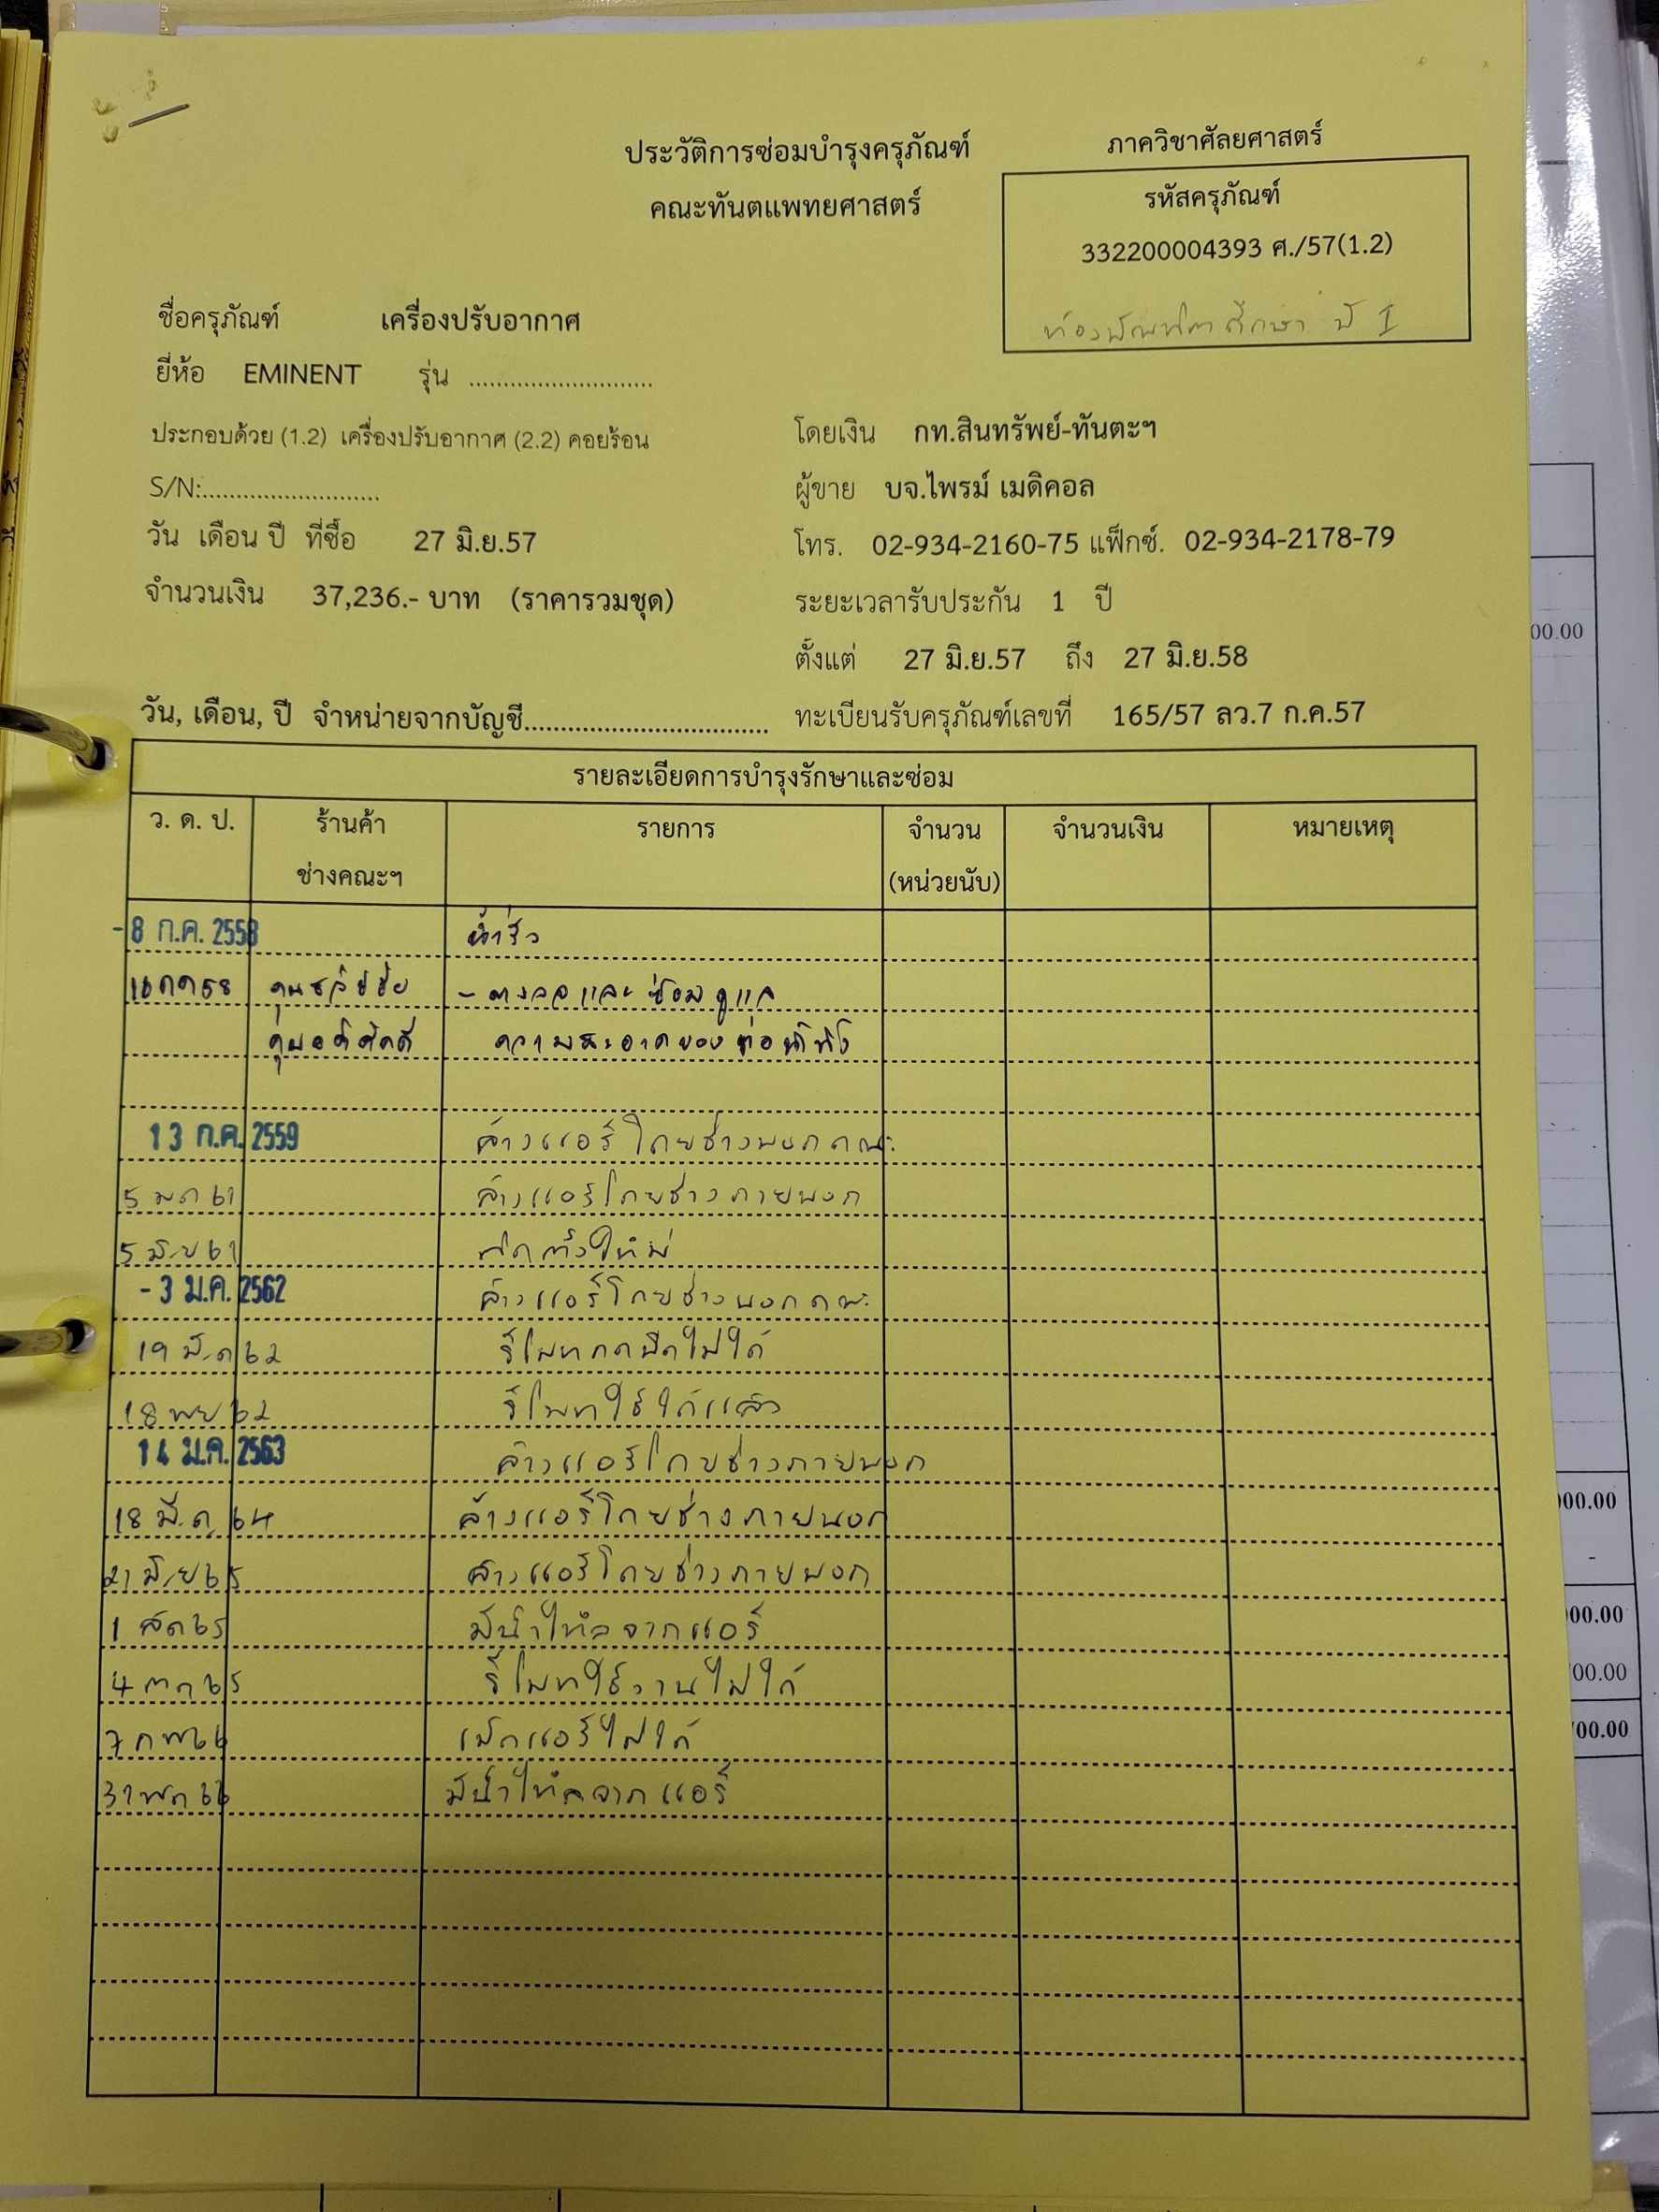 ประวัติการซ่อมบำรุงครุภัณฑ์
คณะทันตแพทยศาสตร์
ภาควิชาศัลยศาสตร์
รหัสครุภัณฑ์
332200004393 ศ./57(1.2)
ห้องบัณฑิตศึกษา ปี I
ชื่อครุภัณฑ์ เครื่องปรับอากาศ
ยี่ห้อ EMINENT รุ่น ...........................
ประกอบด้วย (1.2) เครื่องปรับอากาศ (2.2) คอยร้อน
โดยเงิน กท.สินทรัพย์-ทันตะฯ
S/N:..........................
ผู้ขาย บจ.ไพรม์ เมดิคอล
วัน เดือน ปี ที่ซื้อ 27 มิ.ย.57
โทร. 02-934-2160-75 แฟ็กซ์. 02-934-2178-79
จำนวนเงิน 37,236.- บาท (ราคารวมชุด)
ระยะเวลารับประกัน 1 ปี
ตั้งแต่ 27 มิ.ย.57 ถึง 27 มิ.ย.58
วัน, เดือน, ปี จำหน่ายจากบัญชี..................................
ทะเบียนรับครุภัณฑ์เลขที่ 165/57 ลว.7 ก.ค.57
รายละเอียดการบำรุงรักษาและซ่อม
ว. ด. ป. ร้านค้า รายการ จำนวน จำนวนเงิน หมายเหตุ
ช่างคณะฯ (หน่วยนับ)
- 8 ก.ค. 2558 น้ำรั่ว
16 กค 58 - ตรวจและซ่อมดูแล
ความสะอาดของท่อน้ำทิ้ง
13 ก.ค. 2559 ล้างแอร์โดยช่างนอกคณะ
5 มค 61 ล้างแอร์โดยช่างภายนอก
5 มิย 61 ติดตั้งใหม่
- 3 ม.ค. 2562 ล้างแอร์โดยช่างนอกคณะ
19 มีค 62 รีโมทกดปิดไม่ได้
18 พย 62 รีโมทใช้ได้แล้ว
14 ม.ค. 2563 ล้างแอร์โดยช่างภายนอก
18 มีค 64 ล้างแอร์โดยช่างภายนอก
21 มิย 65 ล้างแอร์โดยช่างภายนอก
1 สค 65 มีน้ำไหลจากแอร์
4 ตค 65 รีโมทใช้งานไม่ได้
7 กพ 66 เปิดแอร์ไม่ได้
31 พค 66 มีน้ำไหลจากแอร์
00.00
000.00
-
000.00
700.00
700.00